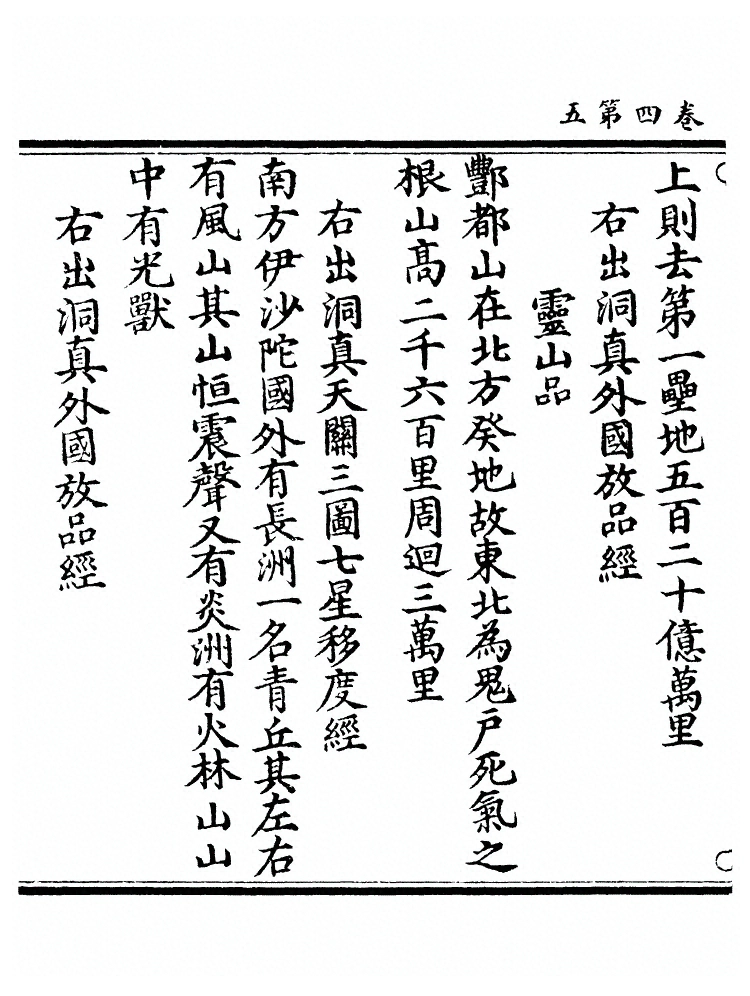 卷四第五
上則去第一壘地五百二十億萬里
右出洞真外國放品經
靈山品
酆都山在北方癸地故東北為鬼戶死氣之
根山高二千六百里周迴三萬里
右出洞真天關三圖七星移度經
南方伊沙陀國外有長洲一名青丘其左右
有風山其山恒震聲又有炎洲有火林山山
中有光獸
右出洞真外國放品經